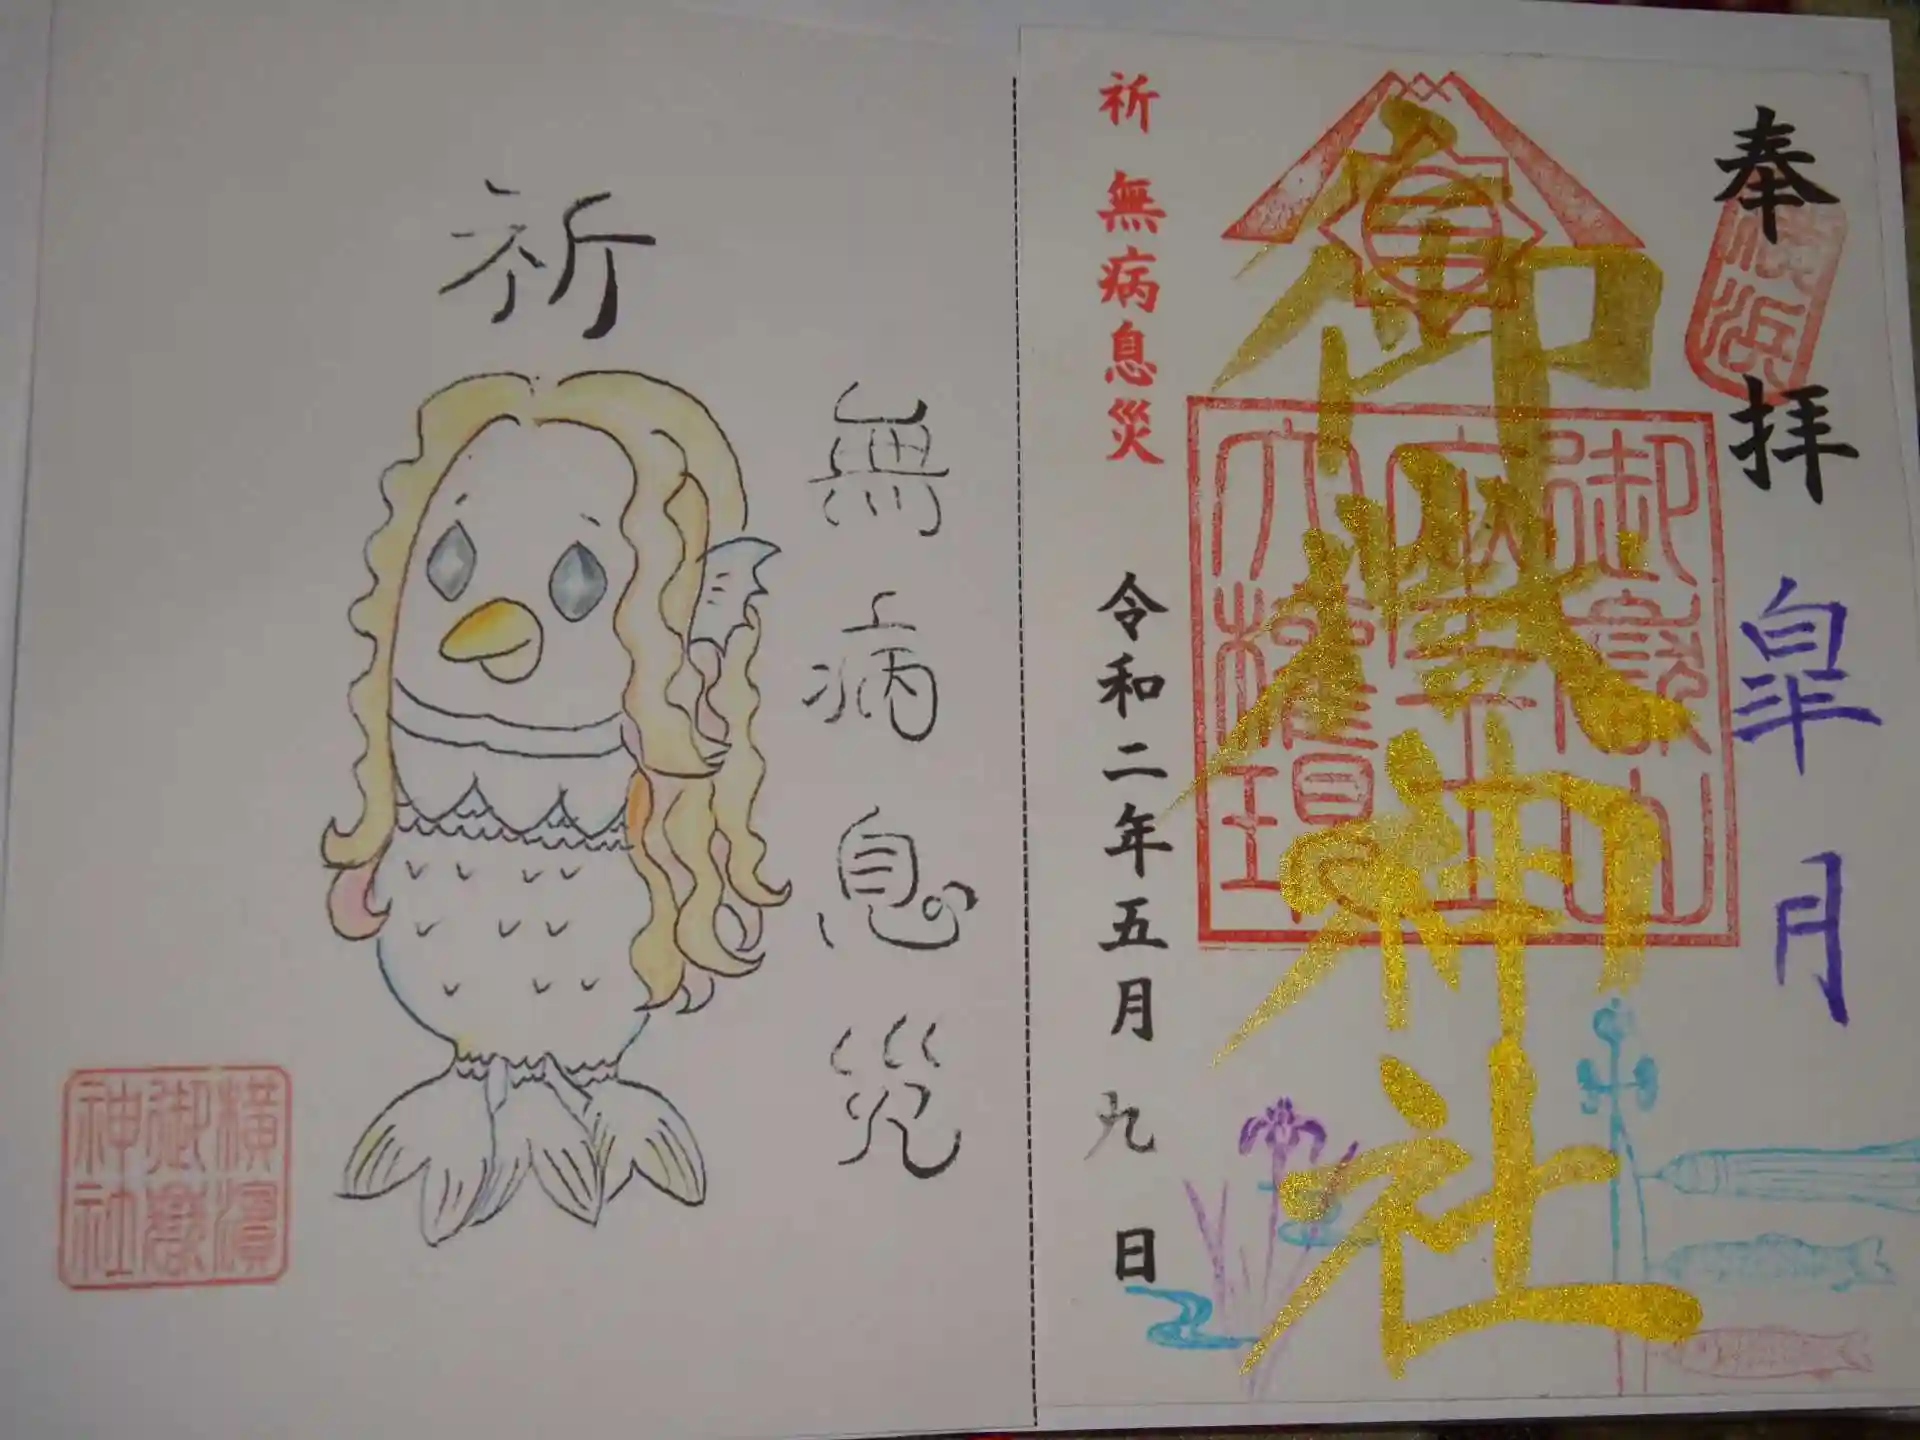 奉拝
皐月
横浜
御嶽神社
御嶽山
大権現
祈 無病息災
令和二年五月九日
祈
無病息災
横濱
御嶽
神社